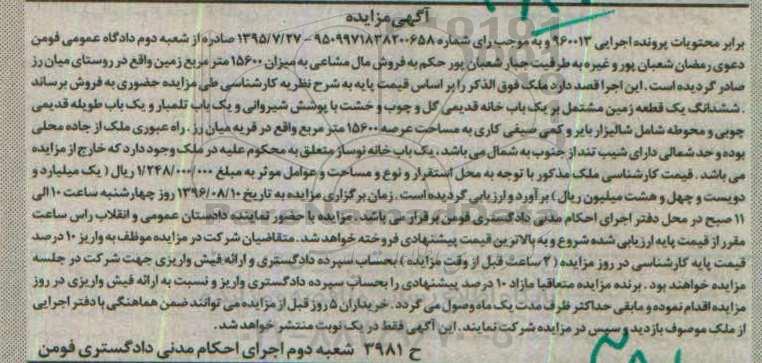 آگهی مزایده
برابر محتویات پرونده اجرایی ۹۶۰۰۱۳ و به موجب رای شماره ۹۵۰۹۹۷۱۸۳۸۲۰۰۶۵۸ – ۱۳۹۵/۷/۲۷ صادره از شعبه دوم دادگاه عمومی فومن
دعوی رمضان شعبان پور و غیره به طرفیت جبار شعبان پور حکم به فروش مال مشاعی به میزان ۱۵۶۰۰ متر مربع زمین واقع در روستای میان رز
صادر گردیده است . این اجرا قصد دارد ملک فوق الذکر را بر اساس قیمت پایه به شرح نظریه کارشناسی طی مزایده حضوری به فروش برساند
. ششدانگ یک قطعه زمین مشتمل بر یک باب خانه قدیمی گل و چوب و خشت با پوشش شیروانی و یک باب تلمبار و یک باب طویله قدیمی
چوبی و محوطه شامل شالیزار بایر و کمی صیفی کاری به مساحت عرصه ۱۵۶۰۰ متر مربع واقع در قریه میان رز . راه عبوری ملک از جاده محلی
بوده و حد شمالی دارای شیب تند از جنوب به شمال می باشد . یک باب خانه نوساز متعلق به محکوم علیه در ملک وجود دارد که خارج از مزایده
می باشد . قیمت کارشناسی ملک مذکور با توجه به محل استقرار و نوع و مساحت و عوامل موثر به مبلغ ۱/۲۴۸/۰۰۰/۰۰۰ ریال ( یک میلیارد و
دویست و چهل و هشت میلیون ریال ) برآورد و ارزیابی گردیده است . زمان برگزاری مزایده به تاریخ ۱۳۹۶/۰۸/۱۰ روز چهارشنبه ساعت ۱۰ الی
۱۱ صبح در محل دفتر اجرای احکام مدنی دادگستری فومن برقرار می باشد . مزایده با حضور نماینده دادستان عمومی و انقلاب راس ساعت
مقرر از قیمت پایه ارزیابی شده شروع و به بالاترین قیمت پیشنهادی فروخته خواهد شد . متقاضیان شرکت در مزایده موظف به واریز ۱۰ درصد
قیمت پایه کارشناسی در روز مزایده ( ۲ ساعت قبل از وقت مزایده ) بحساب سپرده دادگستری و ارائه فیش واریزی جهت شرکت در جلسه
مزایده خواهند بود . برنده مزایده متعاقبا مازاد ۱۰ درصد پیشنهادی را بحساب سپرده دادگستری واریز و نسبت به ارائه فیش واریزی در روز
مزایده اقدام نموده و مابقی حداکثر ظرف مدت یک ماه وصول می گردد . خریداران ۵ روز قبل از مزایده می توانند ضمن هماهنگی با دفتر اجرایی
از ملک موصوف بازدید و سپس در مزایده شرکت نمایند . این آگهی فقط در یک نوبت منتشر خواهد شد .
ح ۳۹۸۱ شعبه دوم اجرای احکام مدنی دادگستری فومن